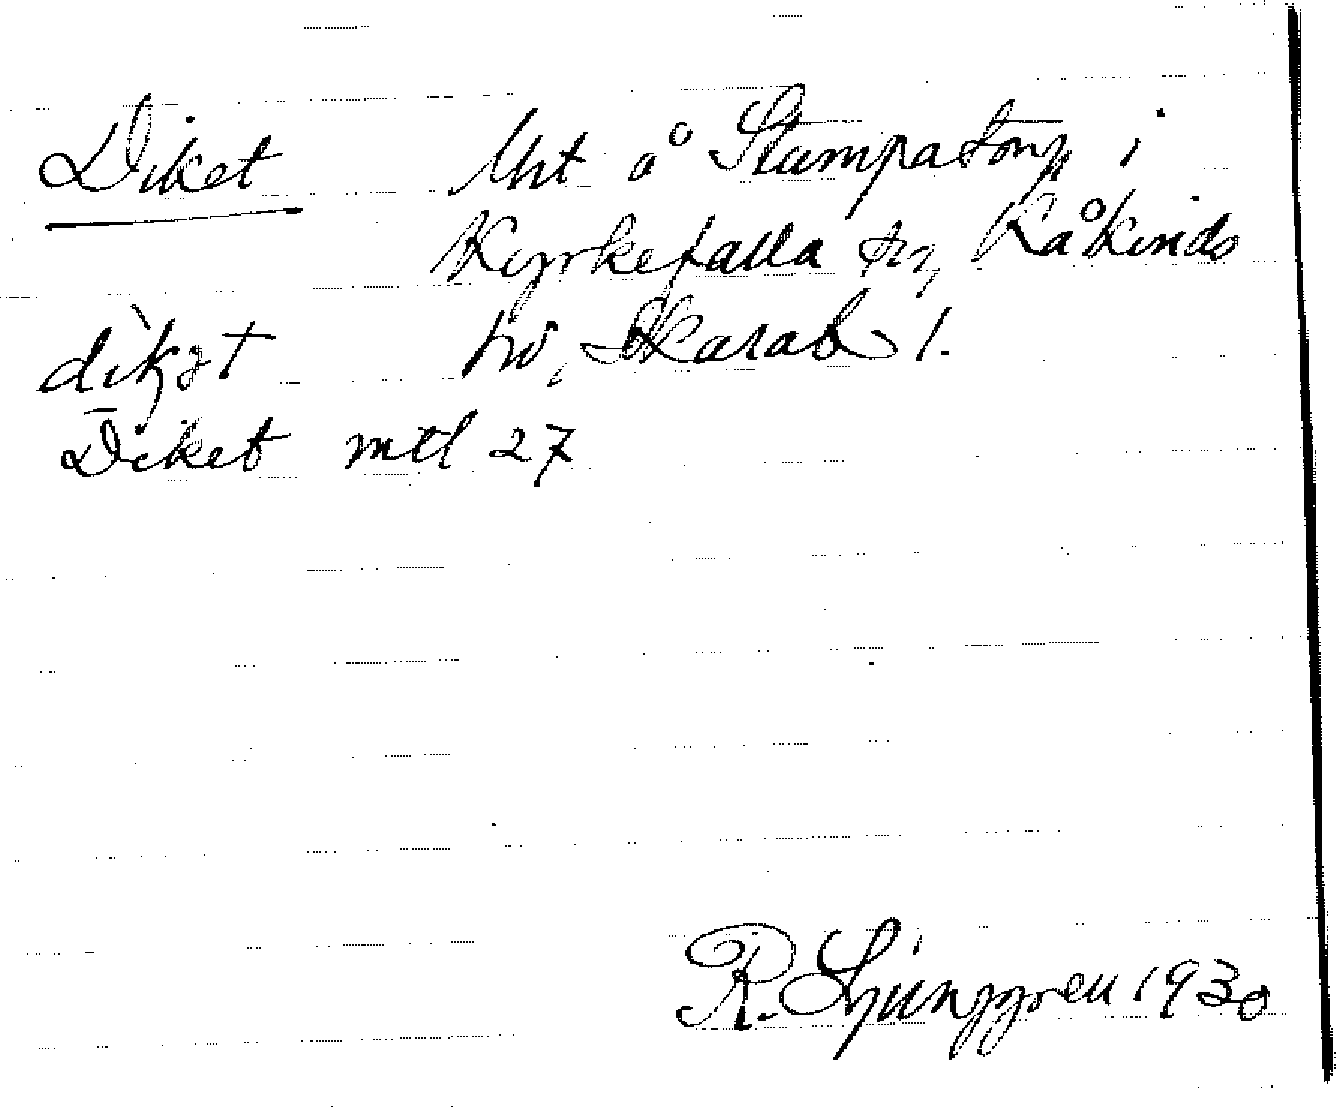 Diket Lht å Stumpatorp i
Kyrkefalla sn, Kåkinds
dìkət hd, Skarab. l.
Diket mtl 27
R. Ljunggren 1930